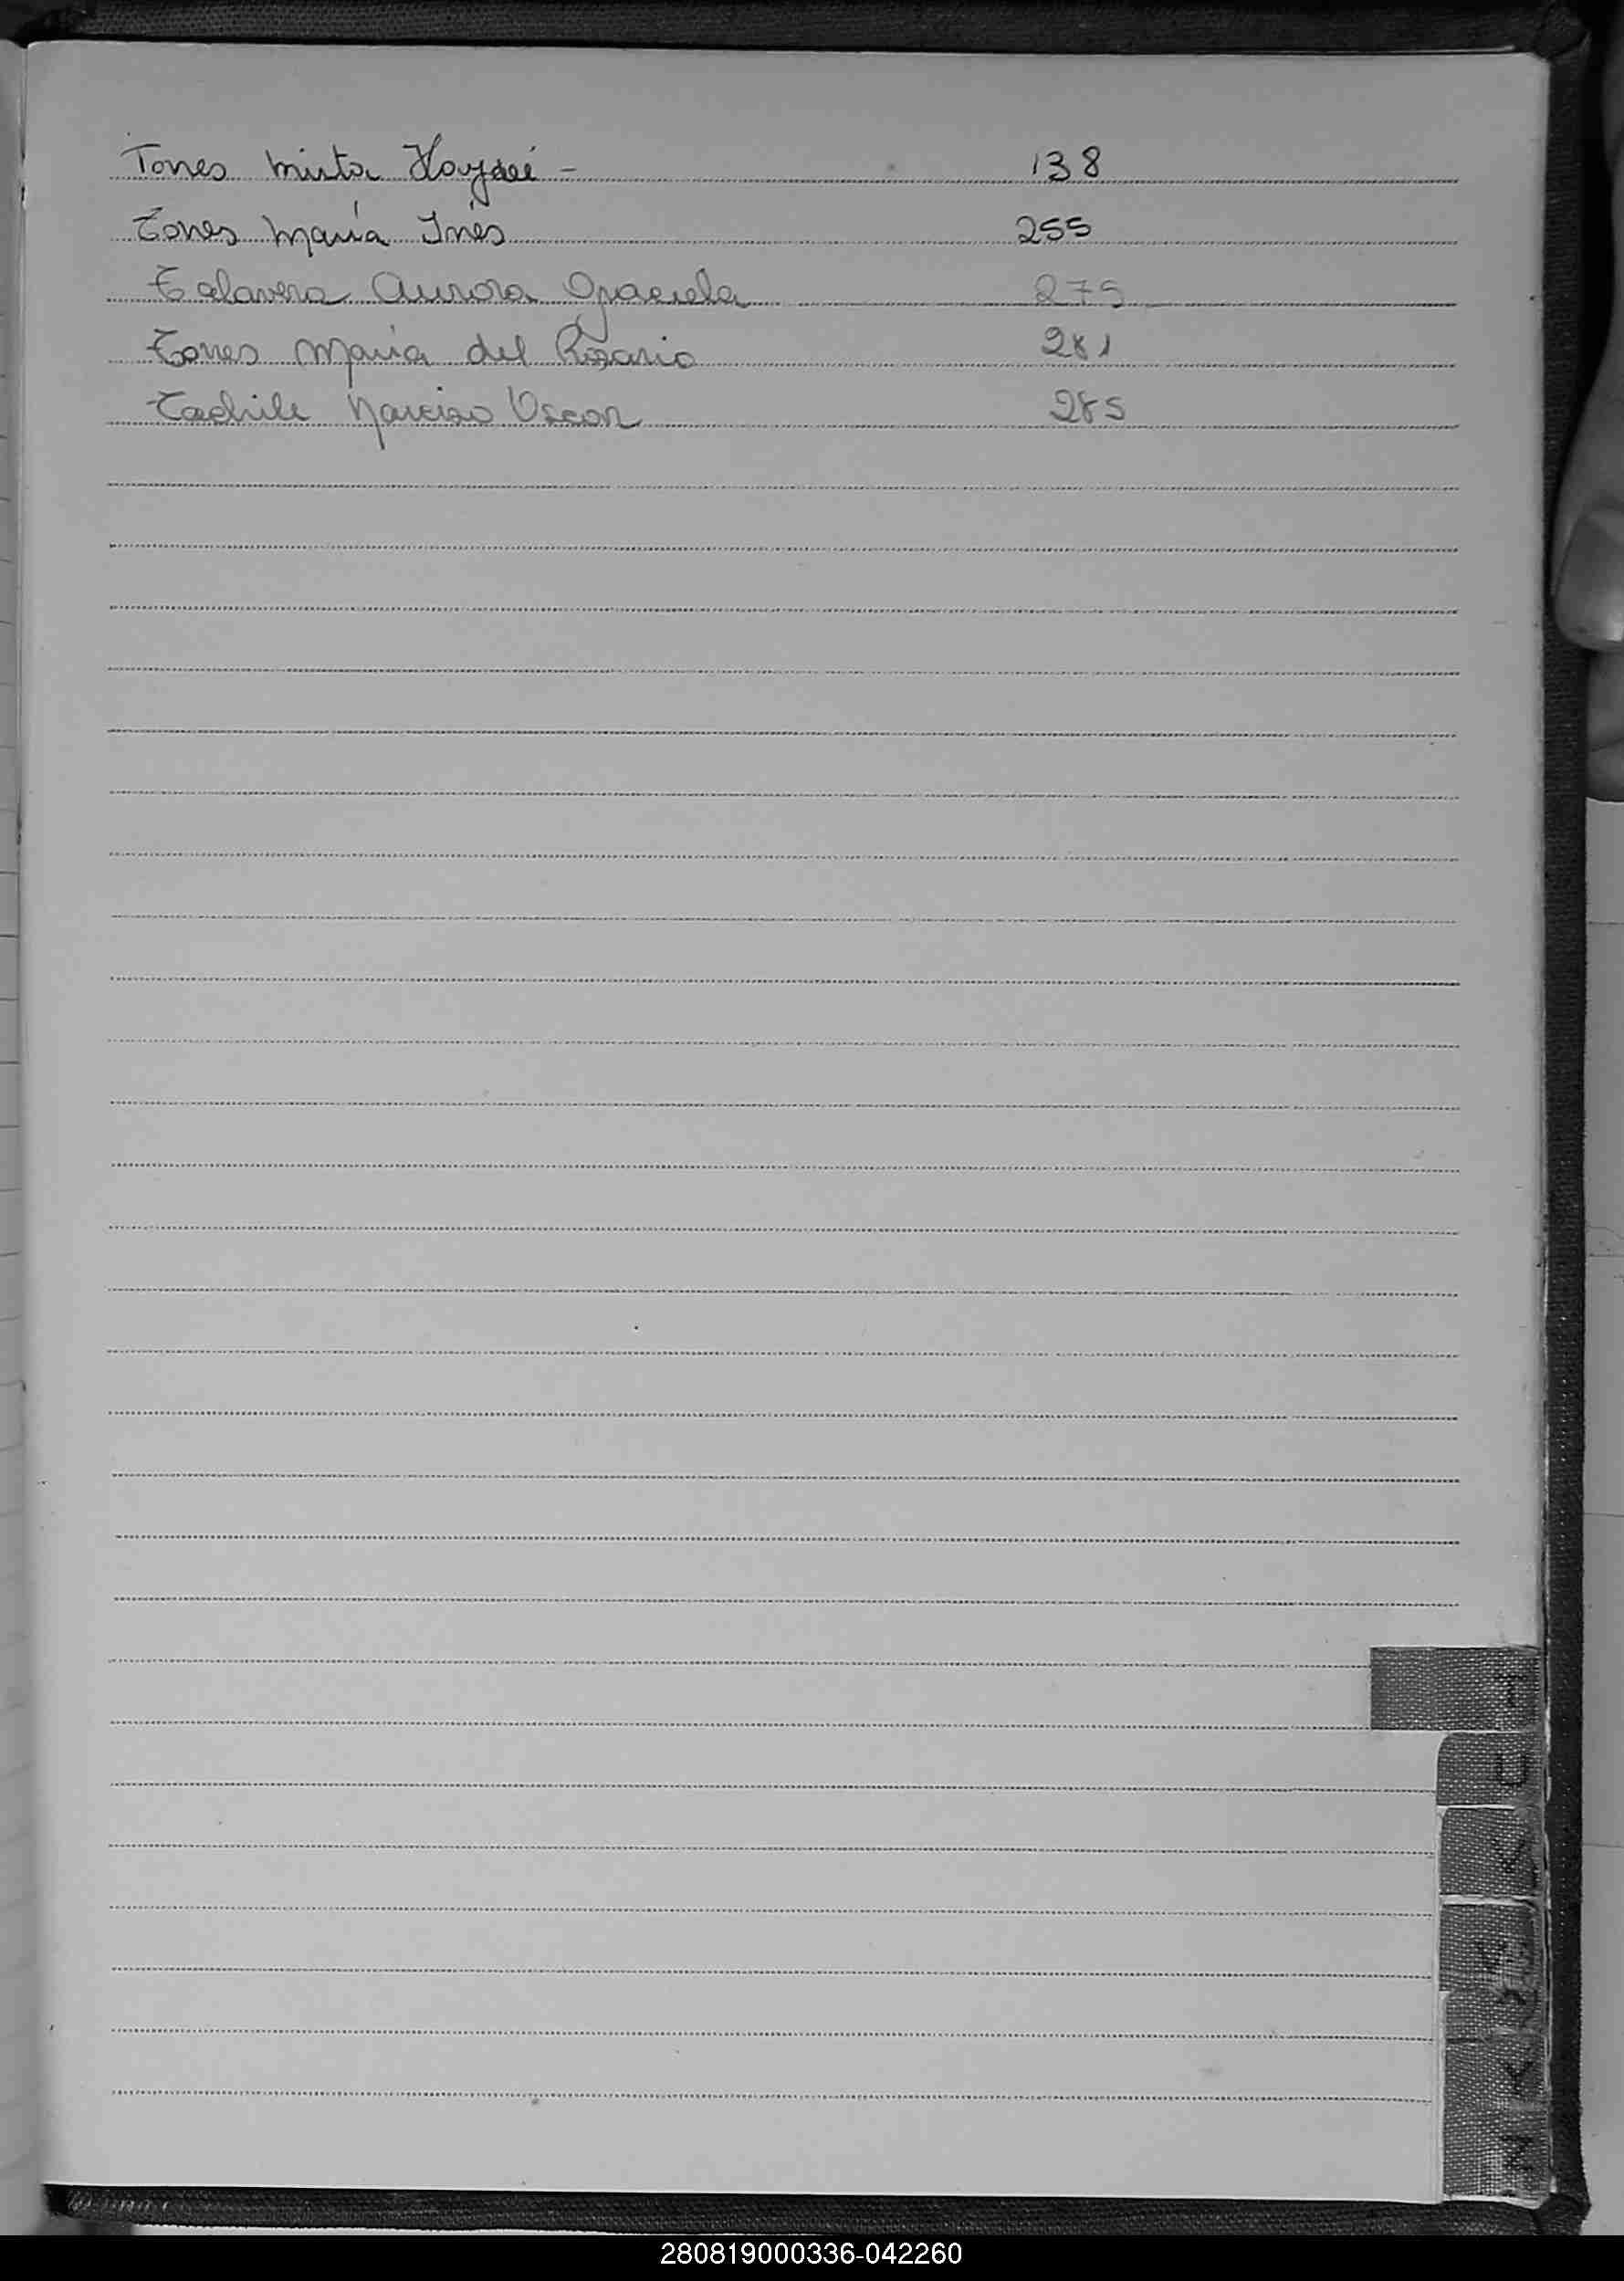 Torres Mirta Haydeé - 138
Torres María Inés 255
Talavera Aurora Graciela 275
Torres María del Rosario 281
Narciso Oscar 285
T
U
280819000336-042260